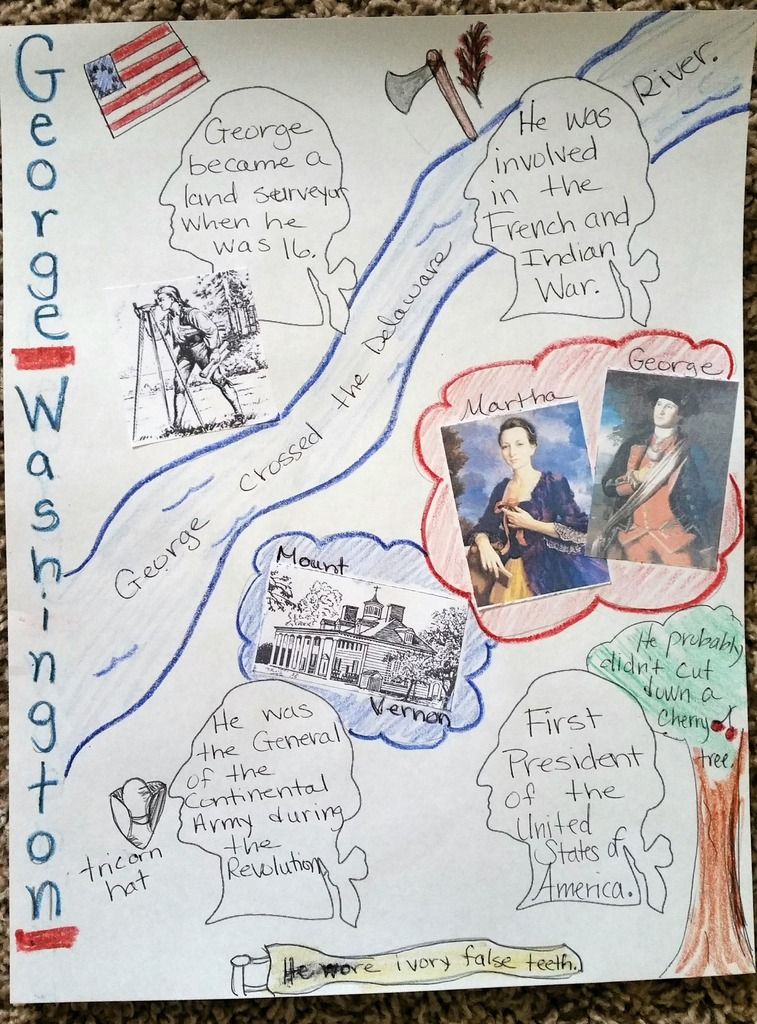 George Washington
George
became a
land surveyor
when he
was 16.
He was
involved
in the
French and
Indian
War.
George crossed the Delaware River.
Martha
George
Mount
Vernon
He probably
didn't cut
down a
cherry
tree.
He was
the General
of the
Continental
Army during
the
Revolution
First
President
of the
United
States of
America.
tricorn
hat
He wore ivory false teeth.